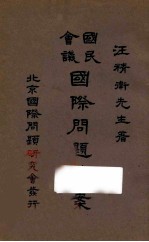 汪精衛先生著
國民
會議
國際問題 案
北京國際問題研究會發行